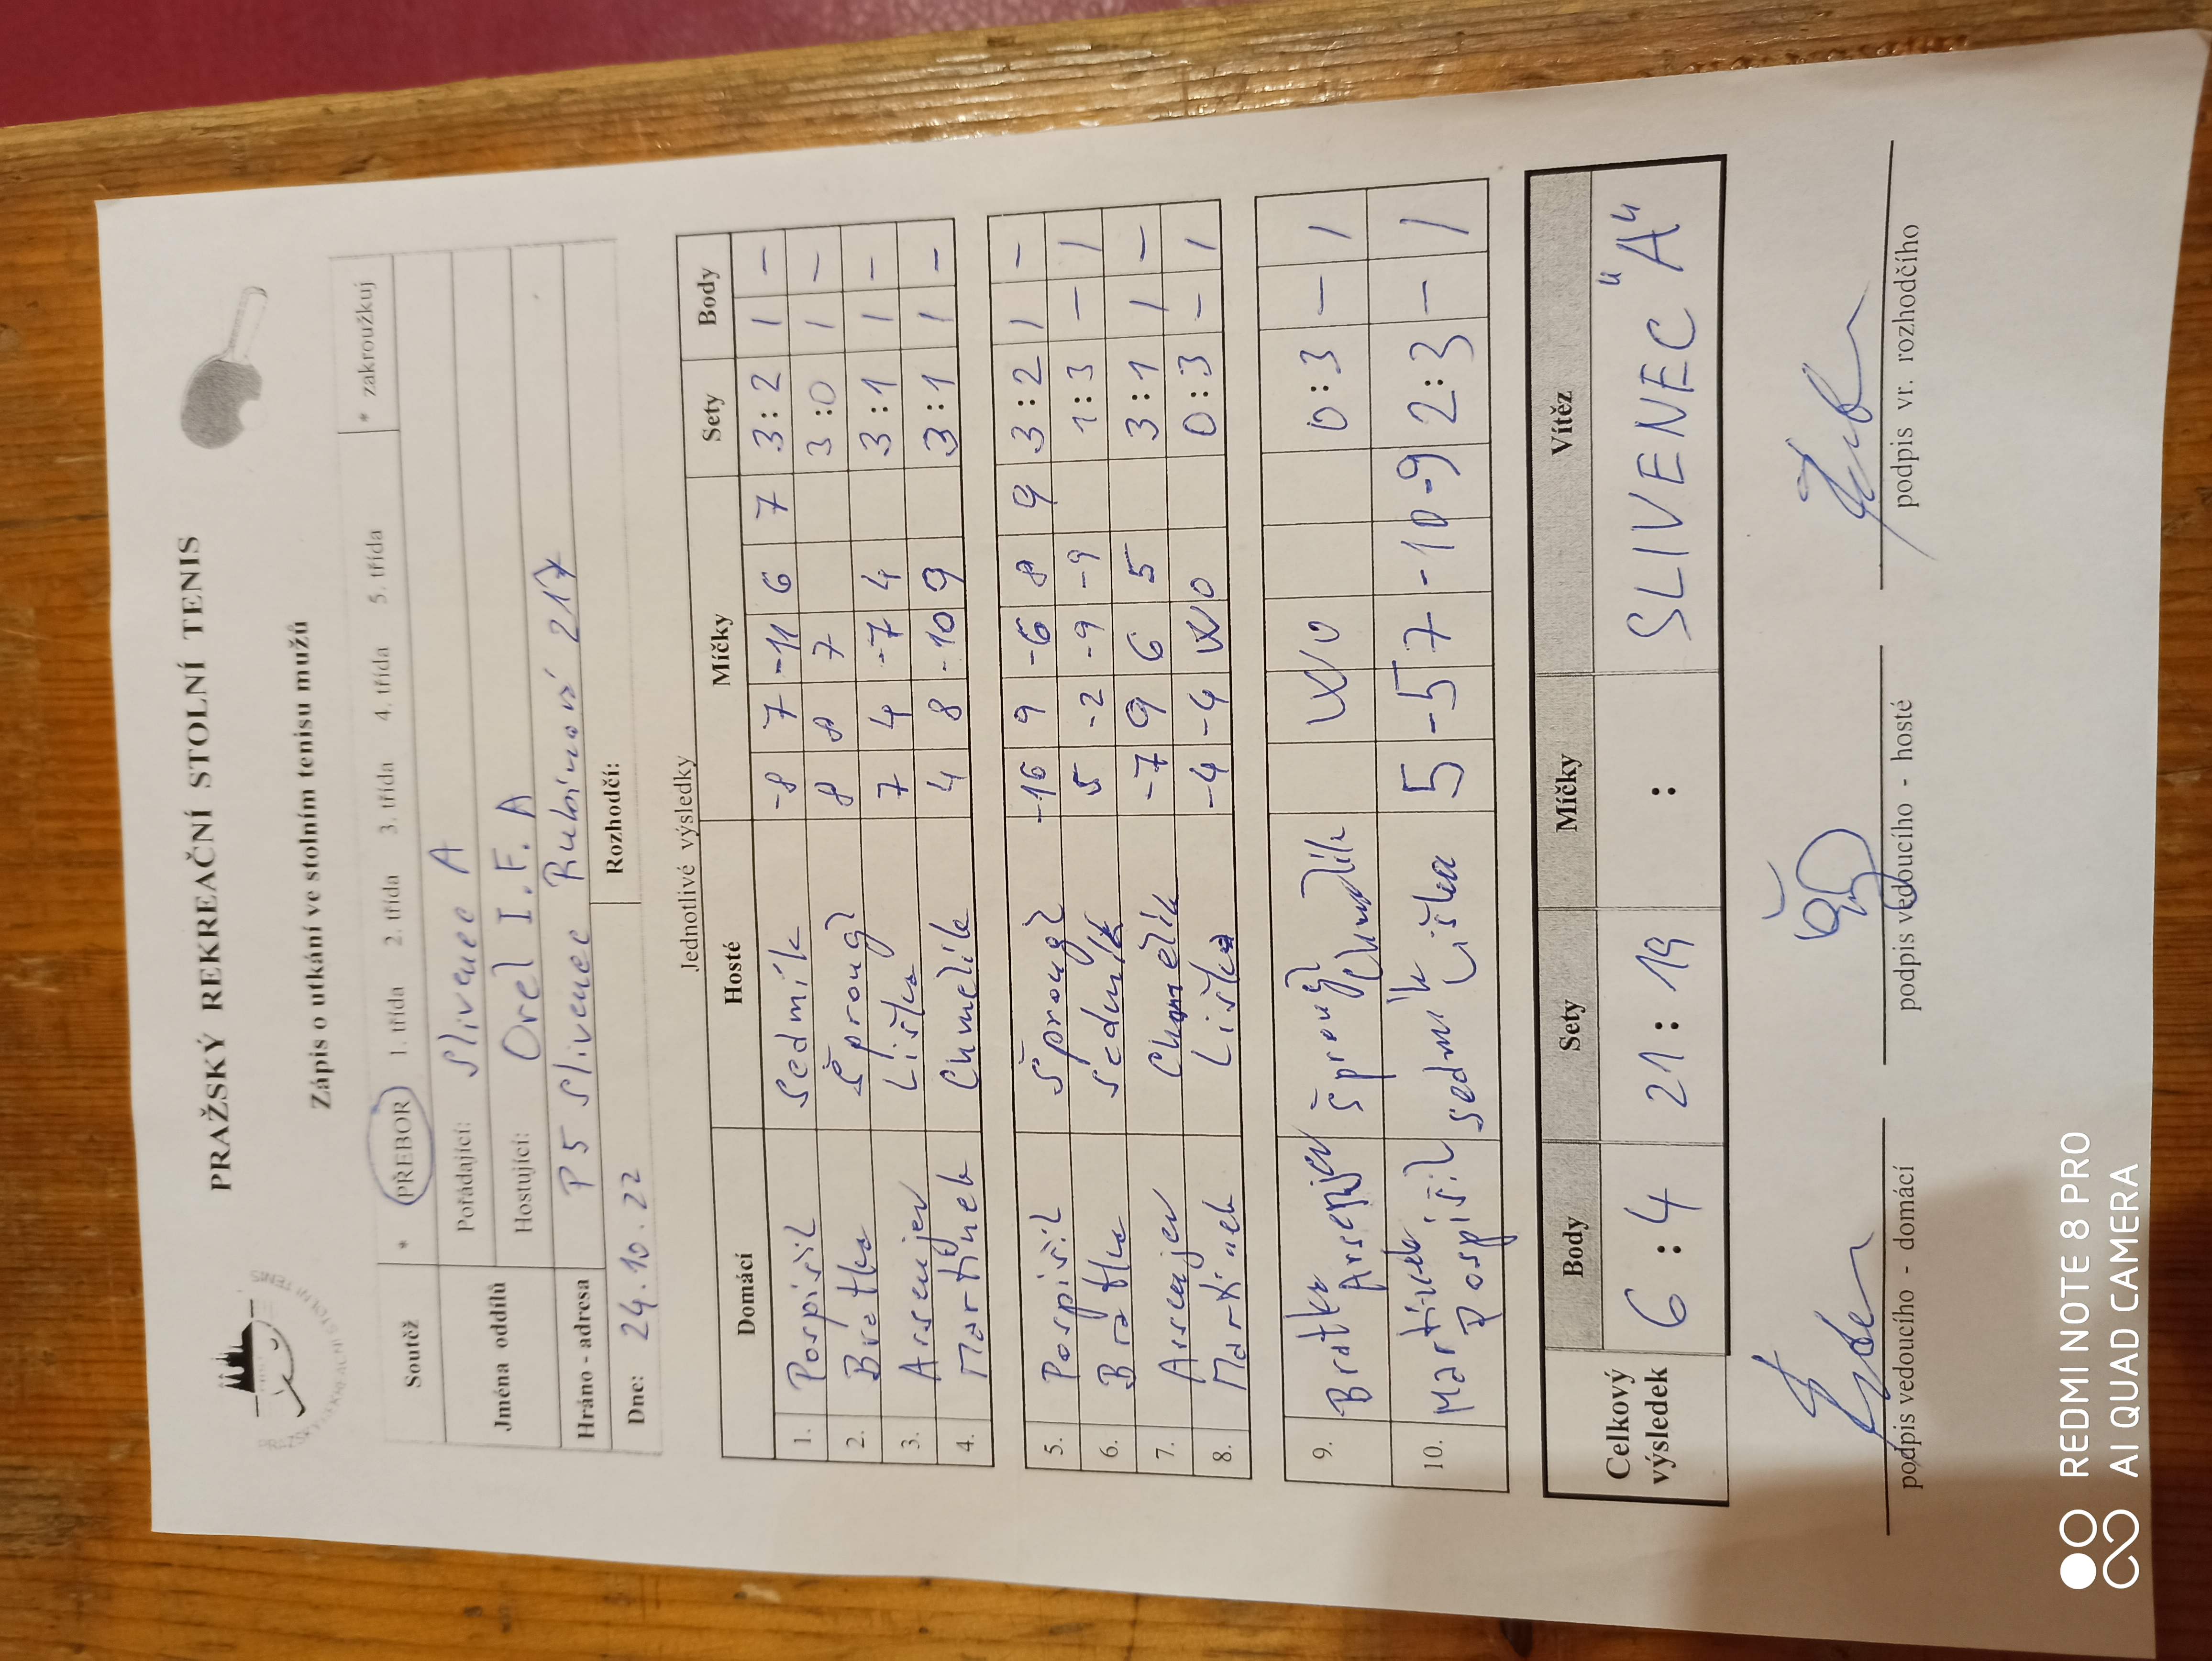 PRAŽSKÝ REKREAČNÍ STOLNÍ TENIS
Zápis o utkání ve stolním tenisu mužů
Soutěž * PŘEBOR 1. třída 2. třída 3. třída 4. třída 5. třída * zakroužkuj
Jména oddílů Pořádající: Slivenec A
Hostující: Orel I.F. A
Hráno - adresa P5 Slivenec Rubínová 217
Dne: 24.10.22 Rozhodčí:
Jednotlivé výsledky
Domácí Hosté Míčky Sety Body
1. Pospíšil Sedmík -8 7 -11 6 7 3:2 1 -
2. Bratka Šprougl 8 8 7 3:0 1 -
3. Arsenjev Liška 7 4 -7 4 3:1 1 -
4. Martínek Chmelík 4 8 -10 9 3:1 1 -
5. Pospíšil Šprougl -16 9 -6 8 9 3:2 1 -
6. Bratka Sedmík 5 -2 -9 -9 1:3 - 1
7. Arsenjev Chmelík -7 9 6 5 3:1 1 -
8. Martínek Liška -4 -4 WO 0:3 - 1
9. Bratka Arsenjev Šprougl Chmelík WO 0:3 - 1
10. Martínek Pospíšil Sedmík Liška 5 -5 7 -10 -9 2:3 - 1
Celkový výsledek
Body Sety Míčky Vítěz
6:4 21:19 : SLIVENEC "A"
podpis vedoucího - domácí podpis vedoucího - hosté podpis vr. rozhodčího
REDMI NOTE 8 PRO
AI QUAD CAMERA